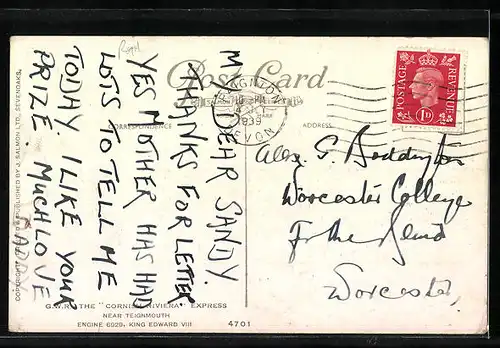 Post Card
CORRESPONDENCE
ADDRESS
MY DEAR SANDY.
THANKS FOR LETTER
YES MOTHER HAS HAD
LOTS TO TELL ME
TODAY. I LIKE YOUR
PRIZE MUCH LOVE
DADDY
Alex. S. Boddington
Worcester College
for the Blind
Worcester,
POSTAGE
REVENUE
1D
DEVON
G.W.R. THE "CORNISH RIVIERA" EXPRESS
NEAR TEIGNMOUTH
ENGINE 6029, KING EDWARD VIII
4701
COPYRIGHT PUBLISHED BY J. SALMON LTD., SEVENOAKS.